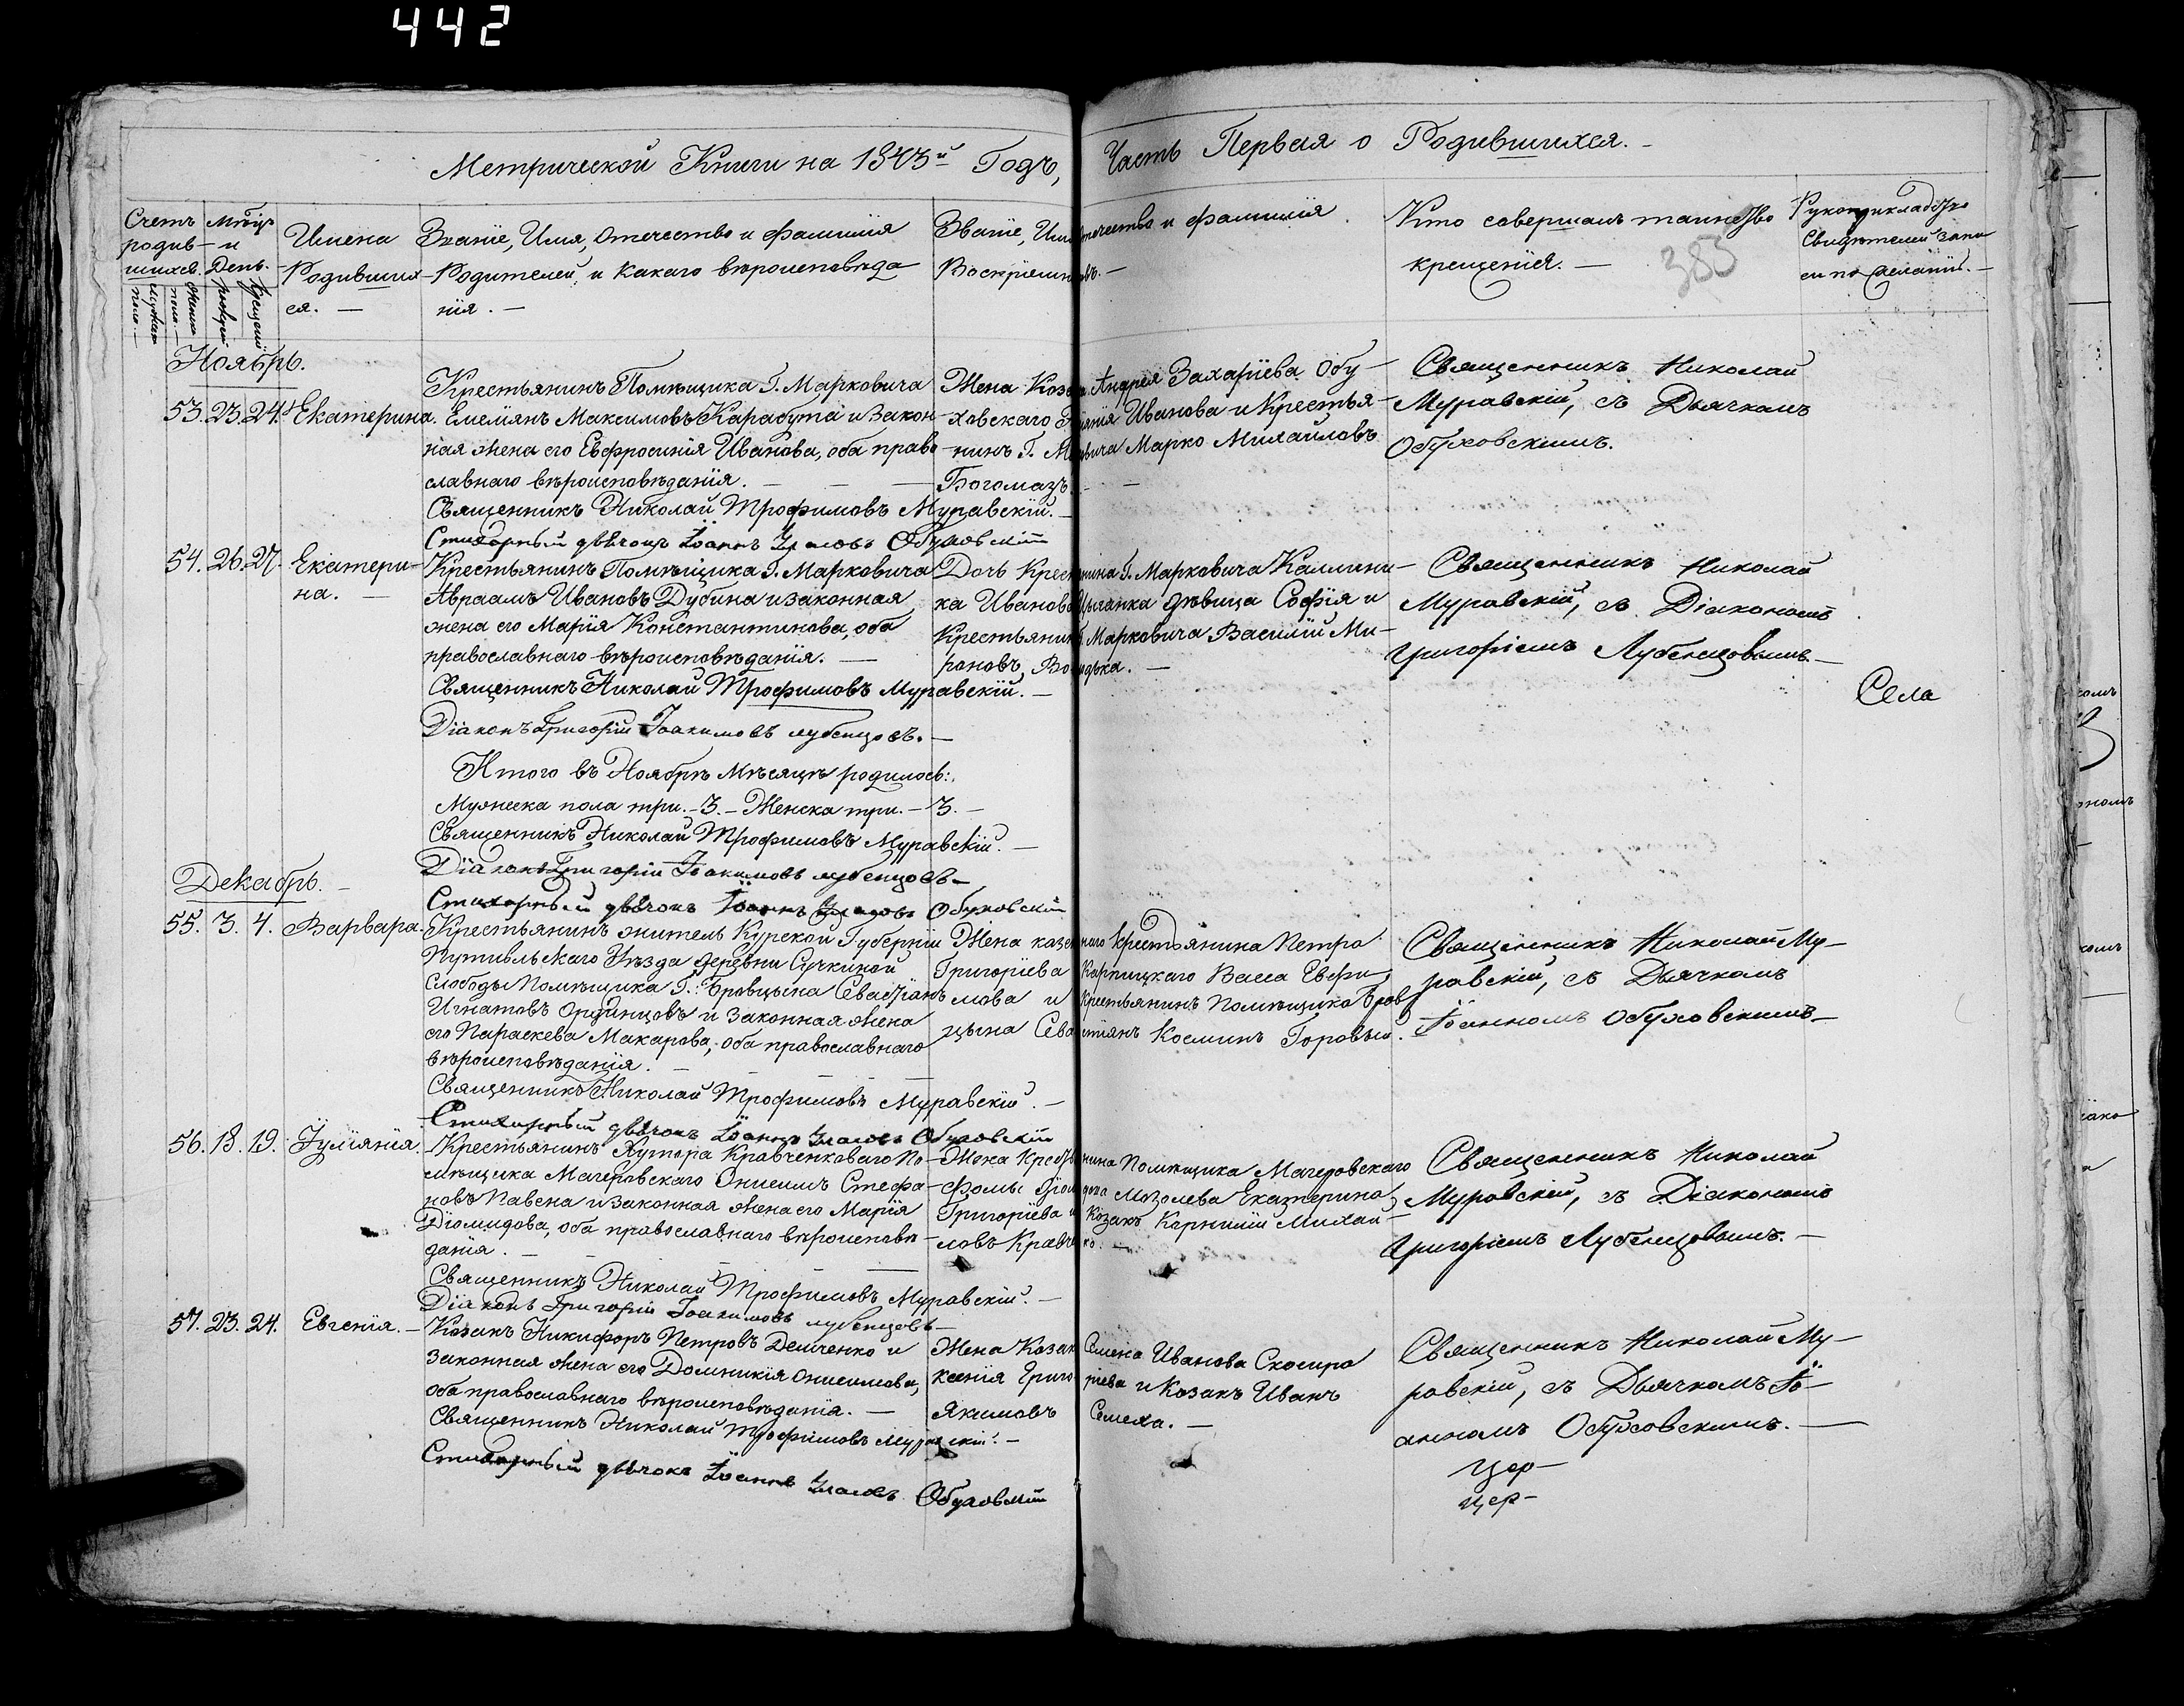 442
Метрической Книги на 1843й Годъ, Часть Первая о Родившихся.
385
Счетъ родив-шихся.
Мужска пола.
Женска пола.
Мѣсяцъ и День.
рожденія
Крещенія
Имена
Родивших-
ся.
Званіе, Имя, Отечество и фамилія
Родителей, и Какаго вѣроисповѣда
нія.
Званіе, Имя Отечество и фамилія
Воспріемниковъ.
Кто совершалъ таинство
крещенія.
Рукоприкладство
Свидѣтелей запи
си по желанію.
Ноябрь.
53. 23. 24. Екатерина.
Крестьянинъ Помѣщика Г. Марковича
Емеліянъ Максимовъ Карабута и Закон-
ная жена его Евфросинія Иванова, оба право
славнаго вѣроисповѣданія.
Жена Козака Андрея Захаріева Обу-
ховскаго Иванова и Крестья-
нинъ Г. Марковича Марко Михайловъ
Богомазъ.
Священникъ Николай
Муравскій, съ Дьячкомъ
Обуховскимъ.
Священникъ Николай Трофимовъ Муравскій.
Стихарный дьячокъ Іоаннъ Обуховскій
54. 26. 27. Екатери-
на.
Крестьянинъ Помѣщика Г. Марковича
Авраамъ Ивановъ Дубина и законная
жена его Марія Константинова, оба
православнаго вѣроисповѣданія.
Дочь Крестьянина Г. Марковича Каллини-
ка Иванова Цыганка дѣвица Софія и
Крестьянинъ Марковича Василій Ми-
роновъ
Священникъ Николай
Муравскій, съ Діакономъ
Григоріемъ Лубенцовымъ.
Села
Священникъ Николай Трофимовъ Муравскій.
Діаконъ Григорій Іоакимовъ Лубенцовъ.
Итого въ Ноябрѣ Мѣсяцѣ родилось:
Мужеска пола три. - 3. - Женска три. - 3. -
Священникъ Николай Трофимовъ Муравскій.
Діаконъ Григорій Іоакимовъ Лубенцовъ
Стихарный дьячокъ Іоаннъ Обуховскій
Декабрь.
55. 3. 4. Варвара.
Крестьянинъ житель Курской Губерніи
Путивльскаго Уѣзда деревни Сучкиной
Слободы Помѣщика Г.: Бравцына Севастіанъ
Игнатовъ Ординцовъ и Законная Жена
его Параскева Макарова, оба православнаго
вѣроисповѣданія.
Жена казеннаго крестьянина Петра
Григоріева Карпицкаго Васса Евфи
мова и Крестьянинъ Помѣщика Брав
цына Севастіянъ Косминъ Горовый.
Священникъ Николай Му-
равскій, съ Дьячкомъ
Іоанномъ Обуховскимъ
Священникъ Николай Трофимовъ Муравскій.
Стихарный дьячокъ Іоаннъ Обуховскій
56. 18. 19. Іуліянія.
Крестьянинъ Хутора Кравченковаго По-
мѣщика Магеровскаго Онисимъ Стефа-
новъ Павена и Законная Жена его Марія
Діомидова, оба православнаго вѣроисповѣ-
данія.
Жена Крестьянина Помѣщика Магеровскаго
Фомы Мозолева Екатерина
Григоріева и Козакъ Корнилій Михай-
ловъ Кравченко.
Священникъ Николай
Муравскій, съ Діакономъ
Григоріемъ Лубенцовымъ.
Священникъ Николай Трофимовъ Муравскій.
Діаконъ Григорій Іоакимовъ Лубенцовъ
57. 23. 24. Евгенія.
Козакъ Никифоръ Петровъ Демченко и
Законная Жена его Домникія Онисимова,
оба православнаго вѣроисповѣданія.
Жена Козака Семена Иванова Скосира
ксенія Григоріева и Козакъ Иванъ
Якимовъ Семеха.
Священникъ Николай Му-
равскій, съ Дьячкомъ Іо-
анномъ Обуховскимъ.
Цер-
цер-
Священникъ Николай Трофимовъ Муравскій.
Стихарный дьячокъ Іоаннъ Обуховскій